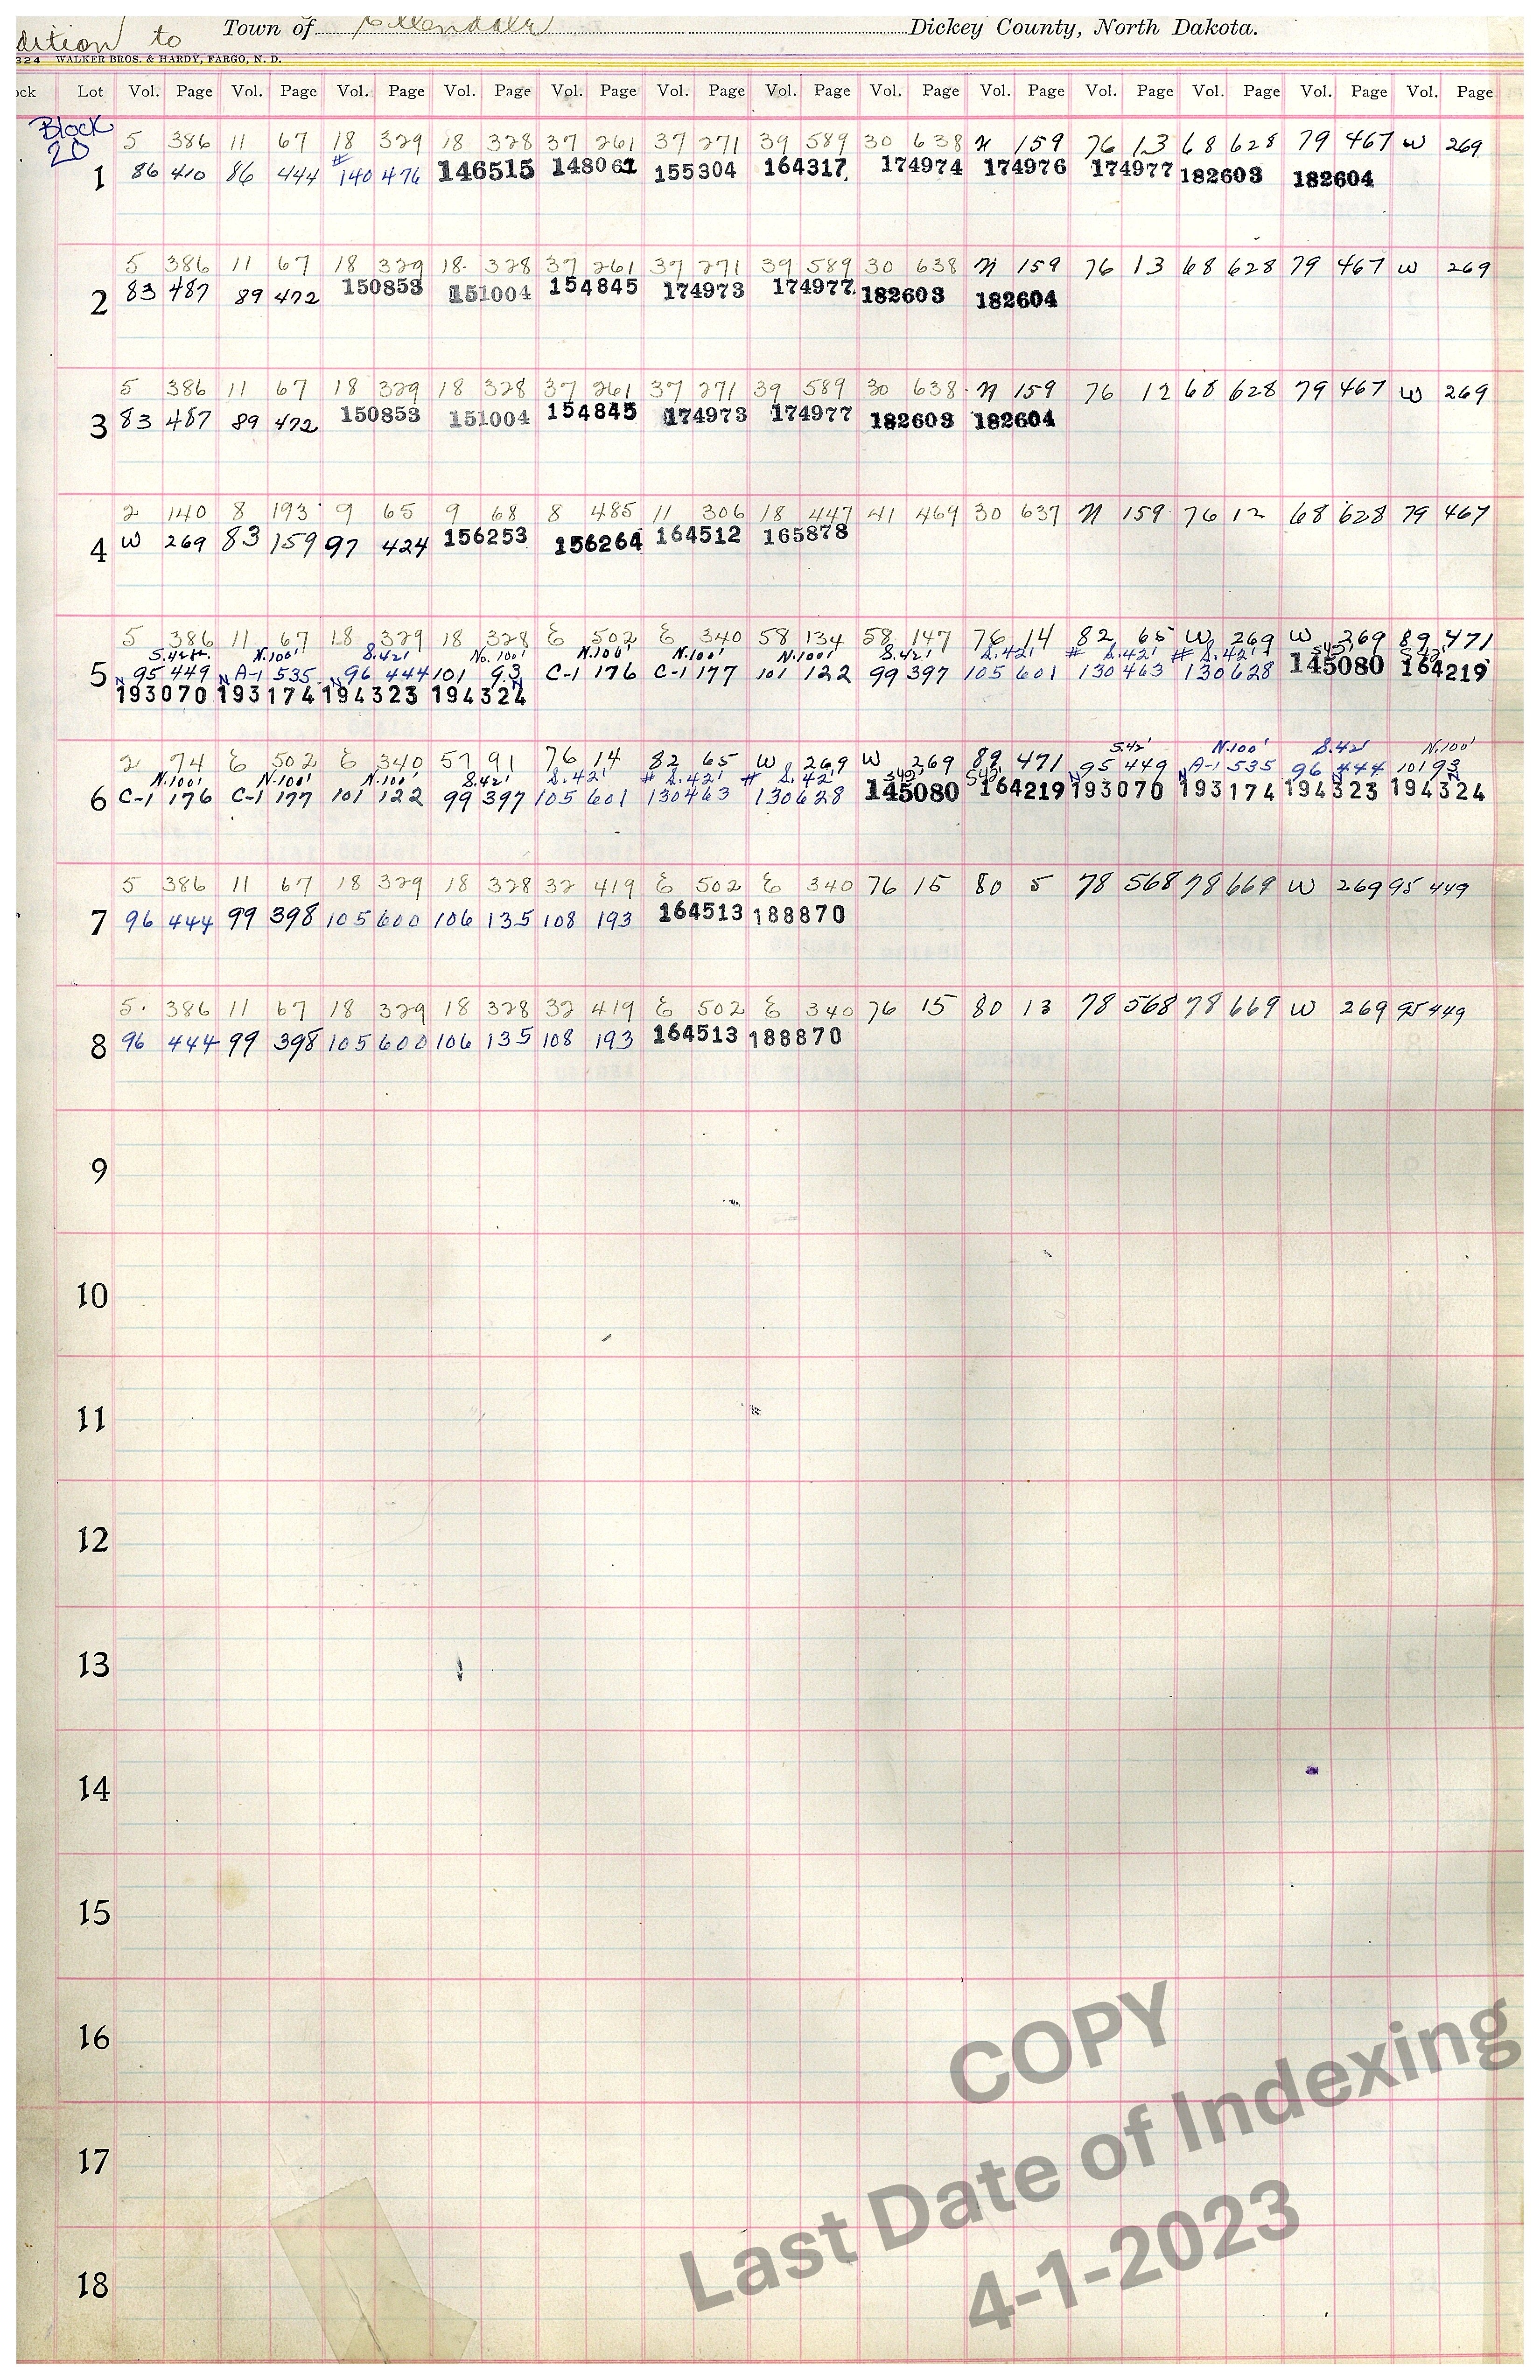 dition to Town of Ellendale Dickey County, North Dakota.
324 WALKER BROS. & HARDY, FARGO, N. D.
ock Lot Vol. Page Vol. Page Vol. Page Vol. Page Vol. Page Vol. Page Vol. Page Vol. Page Vol. Page Vol. Page Vol. Page Vol. Page Vol. Page
Block
20
5 386 11 67 18 329 18 328 37 261 37 271 39 589 30 638 N 159 76 13 68 628 79 467 W 269
1 86 410 86 444 # 140476 146515 148061 155304 164317 174974 174976 174977 182603 182604
5 386 11 67 18 329 18 328 37 261 37 271 39 589 30 638 N 159 76 13 68 628 79 467 W 269
2 83 487 89 472 150853 151004 154845 174973 174977 182603 182604
5 386 11 67 18 329 18 328 37 261 37 271 39 589 30 638 N 159 76 12 68 628 79 467 W 269
3 83 487 89 472 150853 151004 154845 174973 174977 182603 182604
2 140 8 193 9 65 9 68 8 485 11 306 18 447 41 469 30 637 N 159 76 12 68 628 79 467
4 W 269 83 159 97 424 156253 156264 164512 165878
5 386 11 67 18 329 18 328 E 502 E 340 58 134 58 147 76 14 82 65 W 269 W 269 89 471
S.42ft N.100' S.42' No.100' N.100' N.100' N.100' S.42' S.42' # S.42' # S.42' S42' S42'
5 95 449 A-1 535 96 444 101 93 C-1 176 C-1 177 101 122 99 397 105 601 130463 130628 145080 164219
N 193070 N 193174 N 194323 N 194324
2 74 E 502 E 340 57 91 76 14 82 65 W 269 W 269 89 471 S.42' 95 449 N.100' A-1 535 S.42' 96 444 N.100' 101 93
N.100' N.100' N.100' S.42' S.42' # S.42' # S.42' S42' S42' N N N N
6 C-1 176 C-1 177 101 122 99 397 105 601 130463 130628 145080 164219 193070 193174 194323 194324
5 386 11 67 18 329 18 328 32 419 E 502 E 340 76 15 80 5 78 568 78 669 W 269 95 449
7 96 444 99 398 105 600 106 135 108 193 164513 188870
5 386 11 67 18 329 18 328 32 419 E 502 E 340 76 15 80 13 78 568 78 669 W 269 95 449
8 96 444 99 398 105 600 106 135 108 193 164513 188870
9
10
11
12
13
14
15
16
17
18
COPY
Last Date of Indexing
4-1-2023